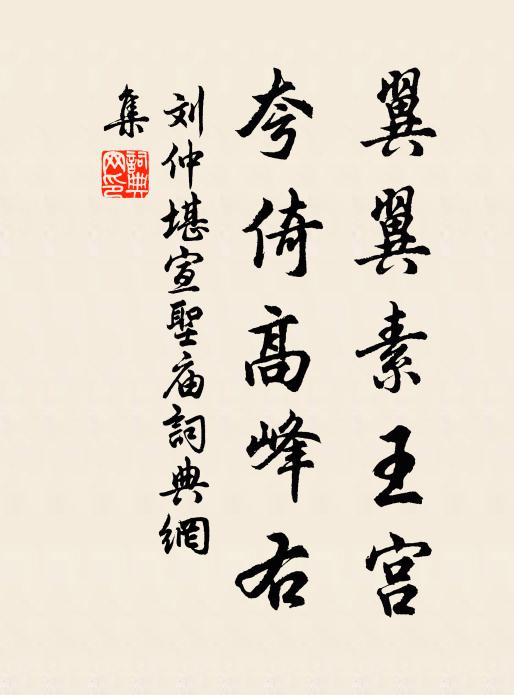 翼翼素王宫
夸倚高峰右
刘仲堪宣聖庙詞典網
集
詞典網印